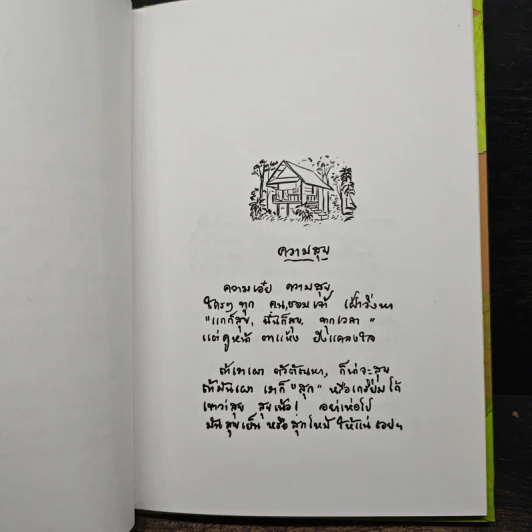 ความสุข
ความเอ๋ย ความสุข
ใครๆ ทุก คน,ชอบเจ้า เฝ้าวิ่งหา
"แกก็สุข, ฉันก็สุข, ทุกเวลา"
แต่ดูหน้า ตาแห้ง ยังแคลงใจ
ถ้าเราเผา ตัวตัณหา, ก็น่าจะสุข
ถ้ามันเผา เราก็ "สุก" หรือเกรียมได้
เขาว่าสุข สุขเน้อ! อย่าเห่อไป
มันสุขเย็น หรือสุกไหม้ ให้แน่ เอยฯ